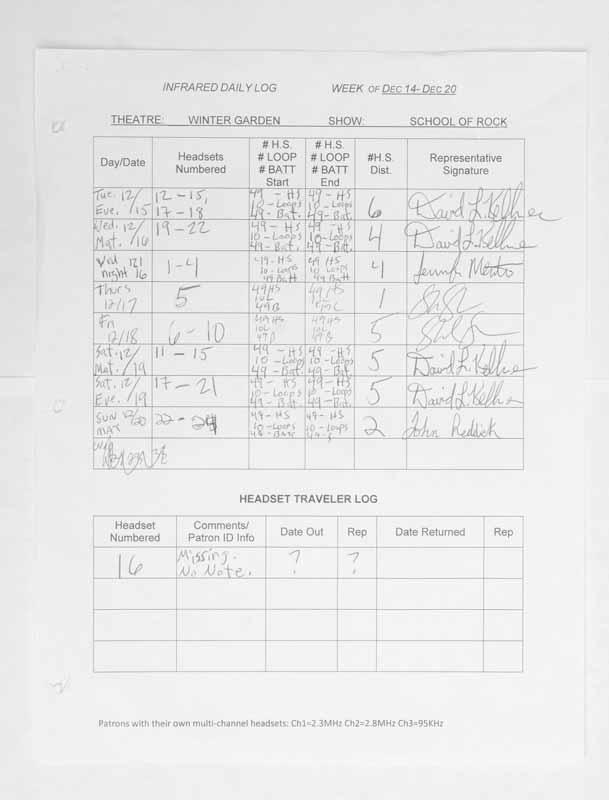 INFRARED DAILY LOG WEEK OF DEC 14- DEC 20
THEATRE: WINTER GARDEN SHOW: SCHOOL OF ROCK
Day/Date Headsets Numbered # H.S. # LOOP # BATT Start # H.S. # LOOP # BATT End #H.S. Dist. Representative Signature
Tue. 12/15 Eve. 12-15, 17-18 49-HS 10-Loops 49-Bat. 49-HS 10-Loops 49-Bat. 6 David L. Kellner
Wed. 12/16 Mat. 19-22 49-HS 10-Loops 49-Bat. 49-HS 10-Loops 49-Bat. 4 David L. Kellner
Wed night 12/16 1-4 49-HS 10-Loops 49 Batt 49 HS 10-Loops 49 Batt 4
Thurs 12/17 5 49 HS 10L 49B 49 HS 1
Fri 12/18 6-10 49 HS 10L 49B 49 HS 10L 5
Sat. 12/19 Mat. 11-15 49-HS 10-Loops 49-Bat. 49-HS 10-Loops 49-Bat. 5 David L. Kellner
Sat. 12/19 Eve. 17-21 49-HS 10-Loops 49-Bat. 49-HS 10-Loops 49-Bat. 5 David L. Kellner
SUN 12/20 MAT 22-24 49-HS 10-Loops 49-Batt 49-HS 10-Loops 2 John Reddick
HEADSET TRAVELER LOG
Headset Numbered Comments/ Patron ID Info Date Out Rep Date Returned Rep
16 Missing. No Note. ? ?
Patrons with their own multi-channel headsets: Ch1=2.3MHz Ch2=2.8MHz Ch3=95KHz